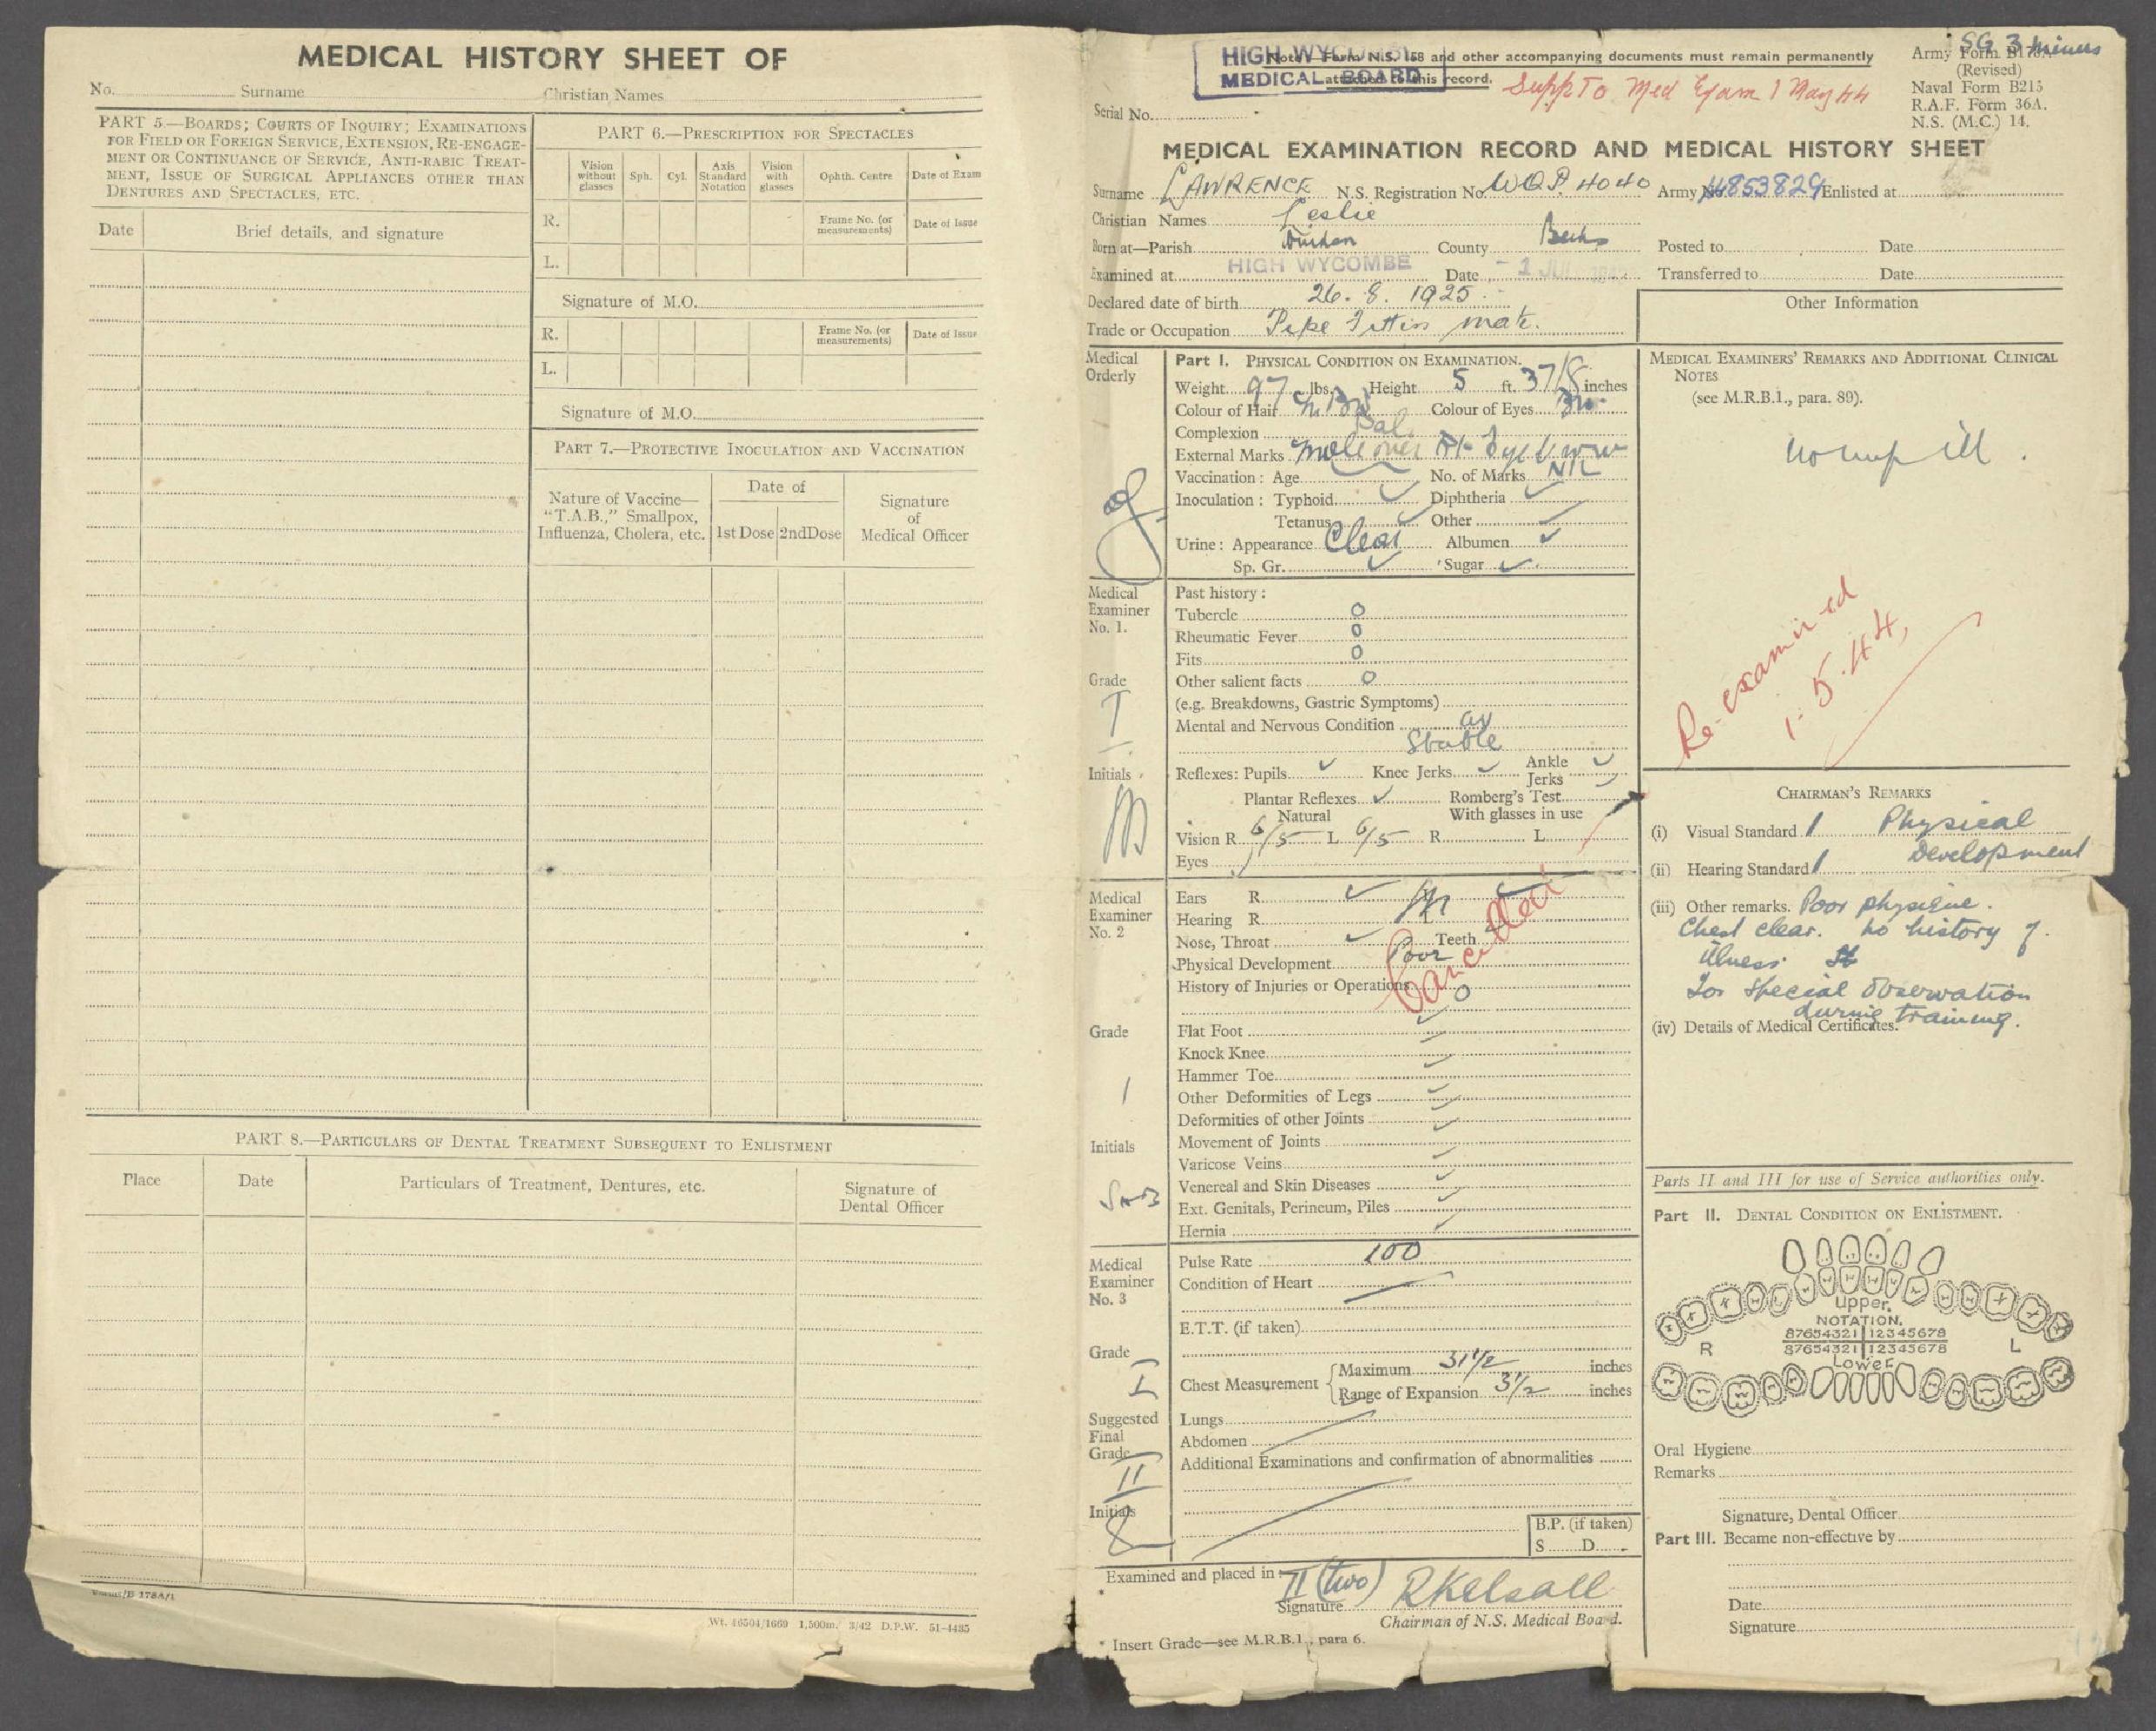 MEDICAL HISTORY SHEET OF
No. Surname Christian Names
PART 5.—BOARDS; COURTS OF INQUIRY; EXAMINATIONS
FOR FIELD OR FOREIGN SERVICE, EXTENSION, RE-ENGAGE-
MENT OR CONTINUANCE OF SERVICE, ANTI-RABIC TREAT-
MENT, ISSUE OF SURGICAL APPLIANCES OTHER THAN
DENTURES AND SPECTACLES, ETC.
Date Brief details, and signature
PART 6.—PRESCRIPTION FOR SPECTACLES
Vision without glasses Sph. Cyl. Axis Standard Notation Vision with glasses Ophth. Centre Date of Exam
R. Frame No. (or measurements) Date of Issue
L.
Signature of M.O.
R. Frame No. (or measurements) Date of Issue
L.
Signature of M.O.
PART 7.—PROTECTIVE INOCULATION AND VACCINATION
Nature of Vaccine—
"T.A.B.," Smallpox,
Influenza, Cholera, etc.
Date of
1st Dose 2nd Dose
Signature
of
Medical Officer
PART 8.—PARTICULARS OF DENTAL TREATMENT SUBSEQUENT TO ENLISTMENT
Place Date Particulars of Treatment, Dentures, etc. Signature of
Dental Officer
Wt. 46504/1669 1,500m. 3/42 D.P.W. 51-4485
HIGH WYCOMBE
MEDICAL BOARD
Note—Form N.S. 158 and other accompanying documents must remain permanently
attached to this record.
Supp To Med Exam 1 May 44
SG 3 Miners
Army Form B178A
(Revised)
Naval Form B215
R.A.F. Form 36A.
N.S. (M.C.) 14.
Serial No.
MEDICAL EXAMINATION RECORD AND MEDICAL HISTORY SHEET
Surname LAWRENCE N.S. Registration No. WQP. 4040 Army No. 14853829 Enlisted at
Christian Names Leslie
Born at—Parish County Posted to Date
Examined at HIGH WYCOMBE Date - 1 Transferred to Date
Declared date of birth 26. 8. 1925.
Trade or Occupation Pipe Fitters mate.
Other Information
Medical
Orderly
Part I. PHYSICAL CONDITION ON EXAMINATION.
Weight 97 lbs. Height 5 ft. 3 7/8 inches
Colour of Hair Colour of Eyes Br.
Complexion Pal.
External Marks Mole over Rt Eyebrow
Vaccination: Age No. of Marks NIL
Inoculation: Typhoid ✓ Diphtheria ✓
Tetanus ✓ Other ✓
Urine: Appearance Clear Albumen ✓
Sp. Gr. ✓ Sugar ✓
Medical
Examiner
No. 1.
Past history:
Tubercle O
Rheumatic Fever O
Fits O
Grade I
Other salient facts O
(e.g. Breakdowns, Gastric Symptoms)
Mental and Nervous Condition av
Stable
Initials
Reflexes: Pupils ✓ Knee Jerks ✓ Ankle Jerks ✓
Plantar Reflexes ✓ Romberg's Test
Natural With glasses in use
Vision R 6/5 L 6/5 R L
Eyes
Medical
Examiner
No. 2
Ears R. ✓
Hearing R
Nose, Throat ✓ Teeth
Physical Development Poor
Cancelled
History of Injuries or Operations O
Grade 1
Flat Foot ✓
Knock Knee ✓
Hammer Toe ✓
Other Deformities of Legs ✓
Deformities of other Joints ✓
Initials
Movement of Joints ✓
Varicose Veins ✓
Venereal and Skin Diseases ✓
Ext. Genitals, Perineum, Piles ✓
Hernia ✓
Medical
Examiner
No. 3
Pulse Rate 100
Condition of Heart
E.T.T. (if taken)
Grade I
Chest Measurement Maximum 31 1/2 inches
Range of Expansion 3 1/2 inches
Suggested
Final
Grade II
Lungs
Abdomen
Additional Examinations and confirmation of abnormalities
Initials
B.P. (if taken)
S D
Examined and placed in II (two)
Signature R Kelsall
Chairman of N.S. Medical Board.
* Insert Grade—see M.R.B.1., para 6.
MEDICAL EXAMINERS' REMARKS AND ADDITIONAL CLINICAL
NOTES
(see M.R.B.1., para. 89).
Re-examined
1. 5. 44,
CHAIRMAN'S REMARKS
(i) Visual Standard 1 Physical
(ii) Hearing Standard 1 Development
(iii) Other remarks. Poor physique.
Chest clear. No history of
illness.
For Special Observation
during training.
(iv) Details of Medical Certificates.
Parts II and III for use of Service authorities only.
Part II. DENTAL CONDITION ON ENLISTMENT.
Upper.
NOTATION.
87654321 12345678
R 87654321 12345678 L
Lower
Oral Hygiene
Remarks
Signature, Dental Officer
Part III. Became non-effective by
Date
Signature